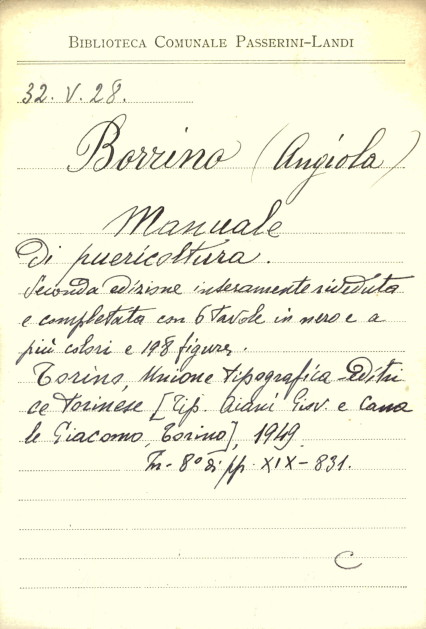 BIBLIOTECA COMUNALE PASSERINI-LANDI
32. V. 28.
Borrino (Angiola)
Manuale
di puericoltura.
Seconda edizione interamente riveduta
e completata con 6 tavole in nero e a
più colori e 198 figure.
Torino, Unione tipografica-editri
ce torinese [Tip. Giov. e Cana
le Giacomo, Torino], 1949
In-8° di pp. XIX-831.
C